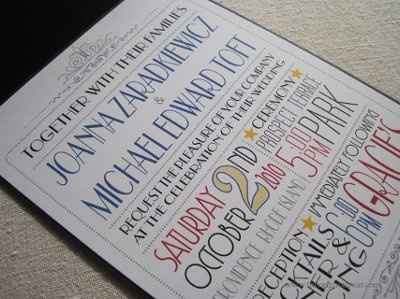 TOGETHER WITH THEIR FAMILIES
JOANNA ZARADKIEWICZ
&
MICHAEL EDWARD TOFT
REQUEST THE PLEASURE OF YOUR COMPANY
AT THE CELEBRATION OF THEIR WEDDING
SATURDAY
OCTOBER
2ND
2010
CEREMONY
PROSPECT TERRACE
PARK
5:00
PM
PROVIDENCE RHODE ISLAND
IMMEDIATELY FOLLOWING
6:00
PM
GRACIE'S